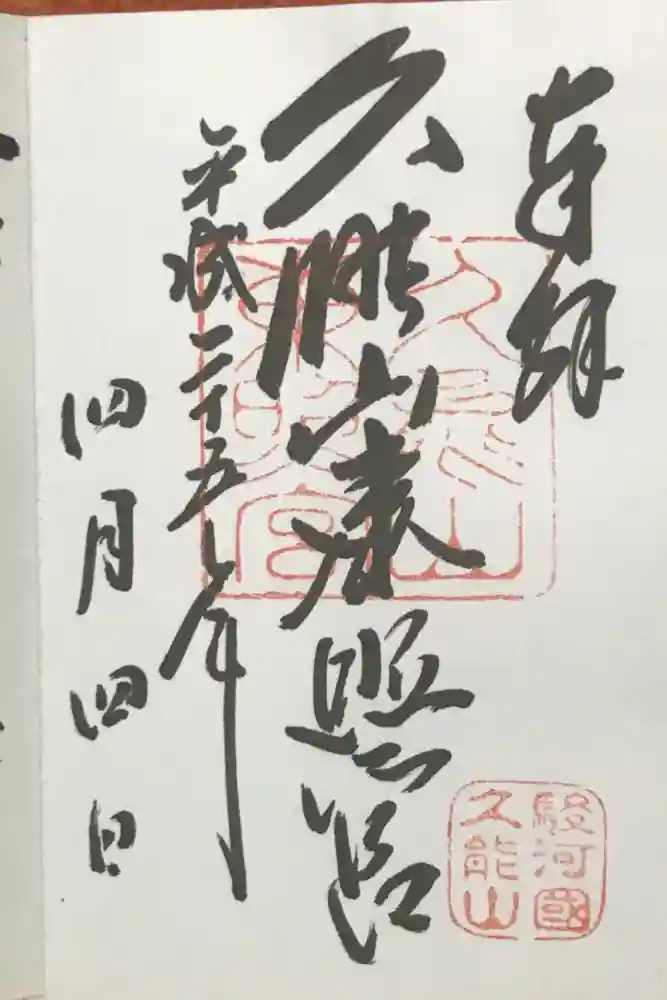 奉拝
久能山東照宮
平成二十五年
四月四日
久能山
東照宮
駿河國
久能山